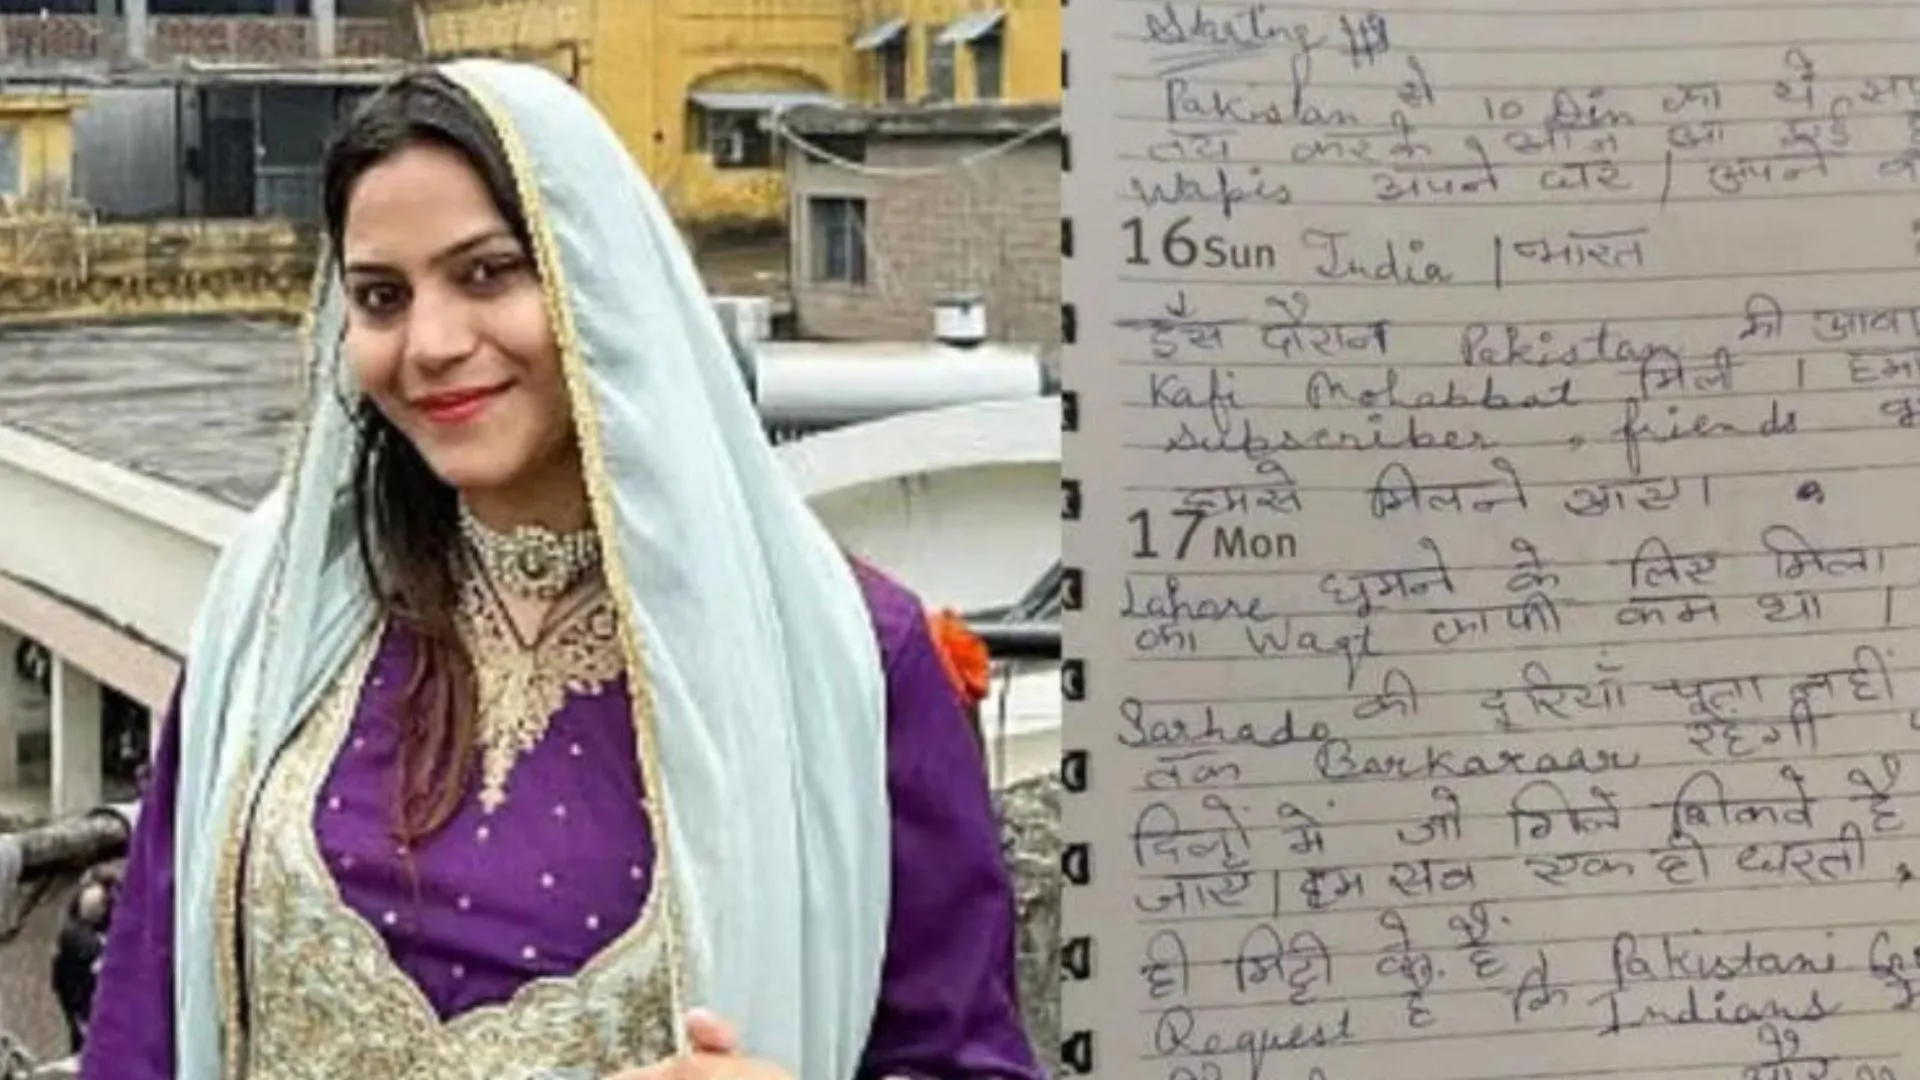 Starting
Pakistan से 10 Din का ये
तय करके आज आ गई
Wapis अपने घर | अपने
16 Sun India | भारत
इस दौरान Pakistan की आवा
Kafi Mohabbat मिली । हमा
subscriber, friends
हमसे मिलने आए।
17 Mon
Lahore घूमने के लिए मिला
का Waqt काफी कम था ।
Sarhado की दूरियाँ पता नहीं
तक Barkaraar रहेगी
दिलों में जो गिले शिकवे है
जाएँ | हम सब एक ही धरती,
ही मिट्टी के है। Pakistani
Request है कि Indians
और